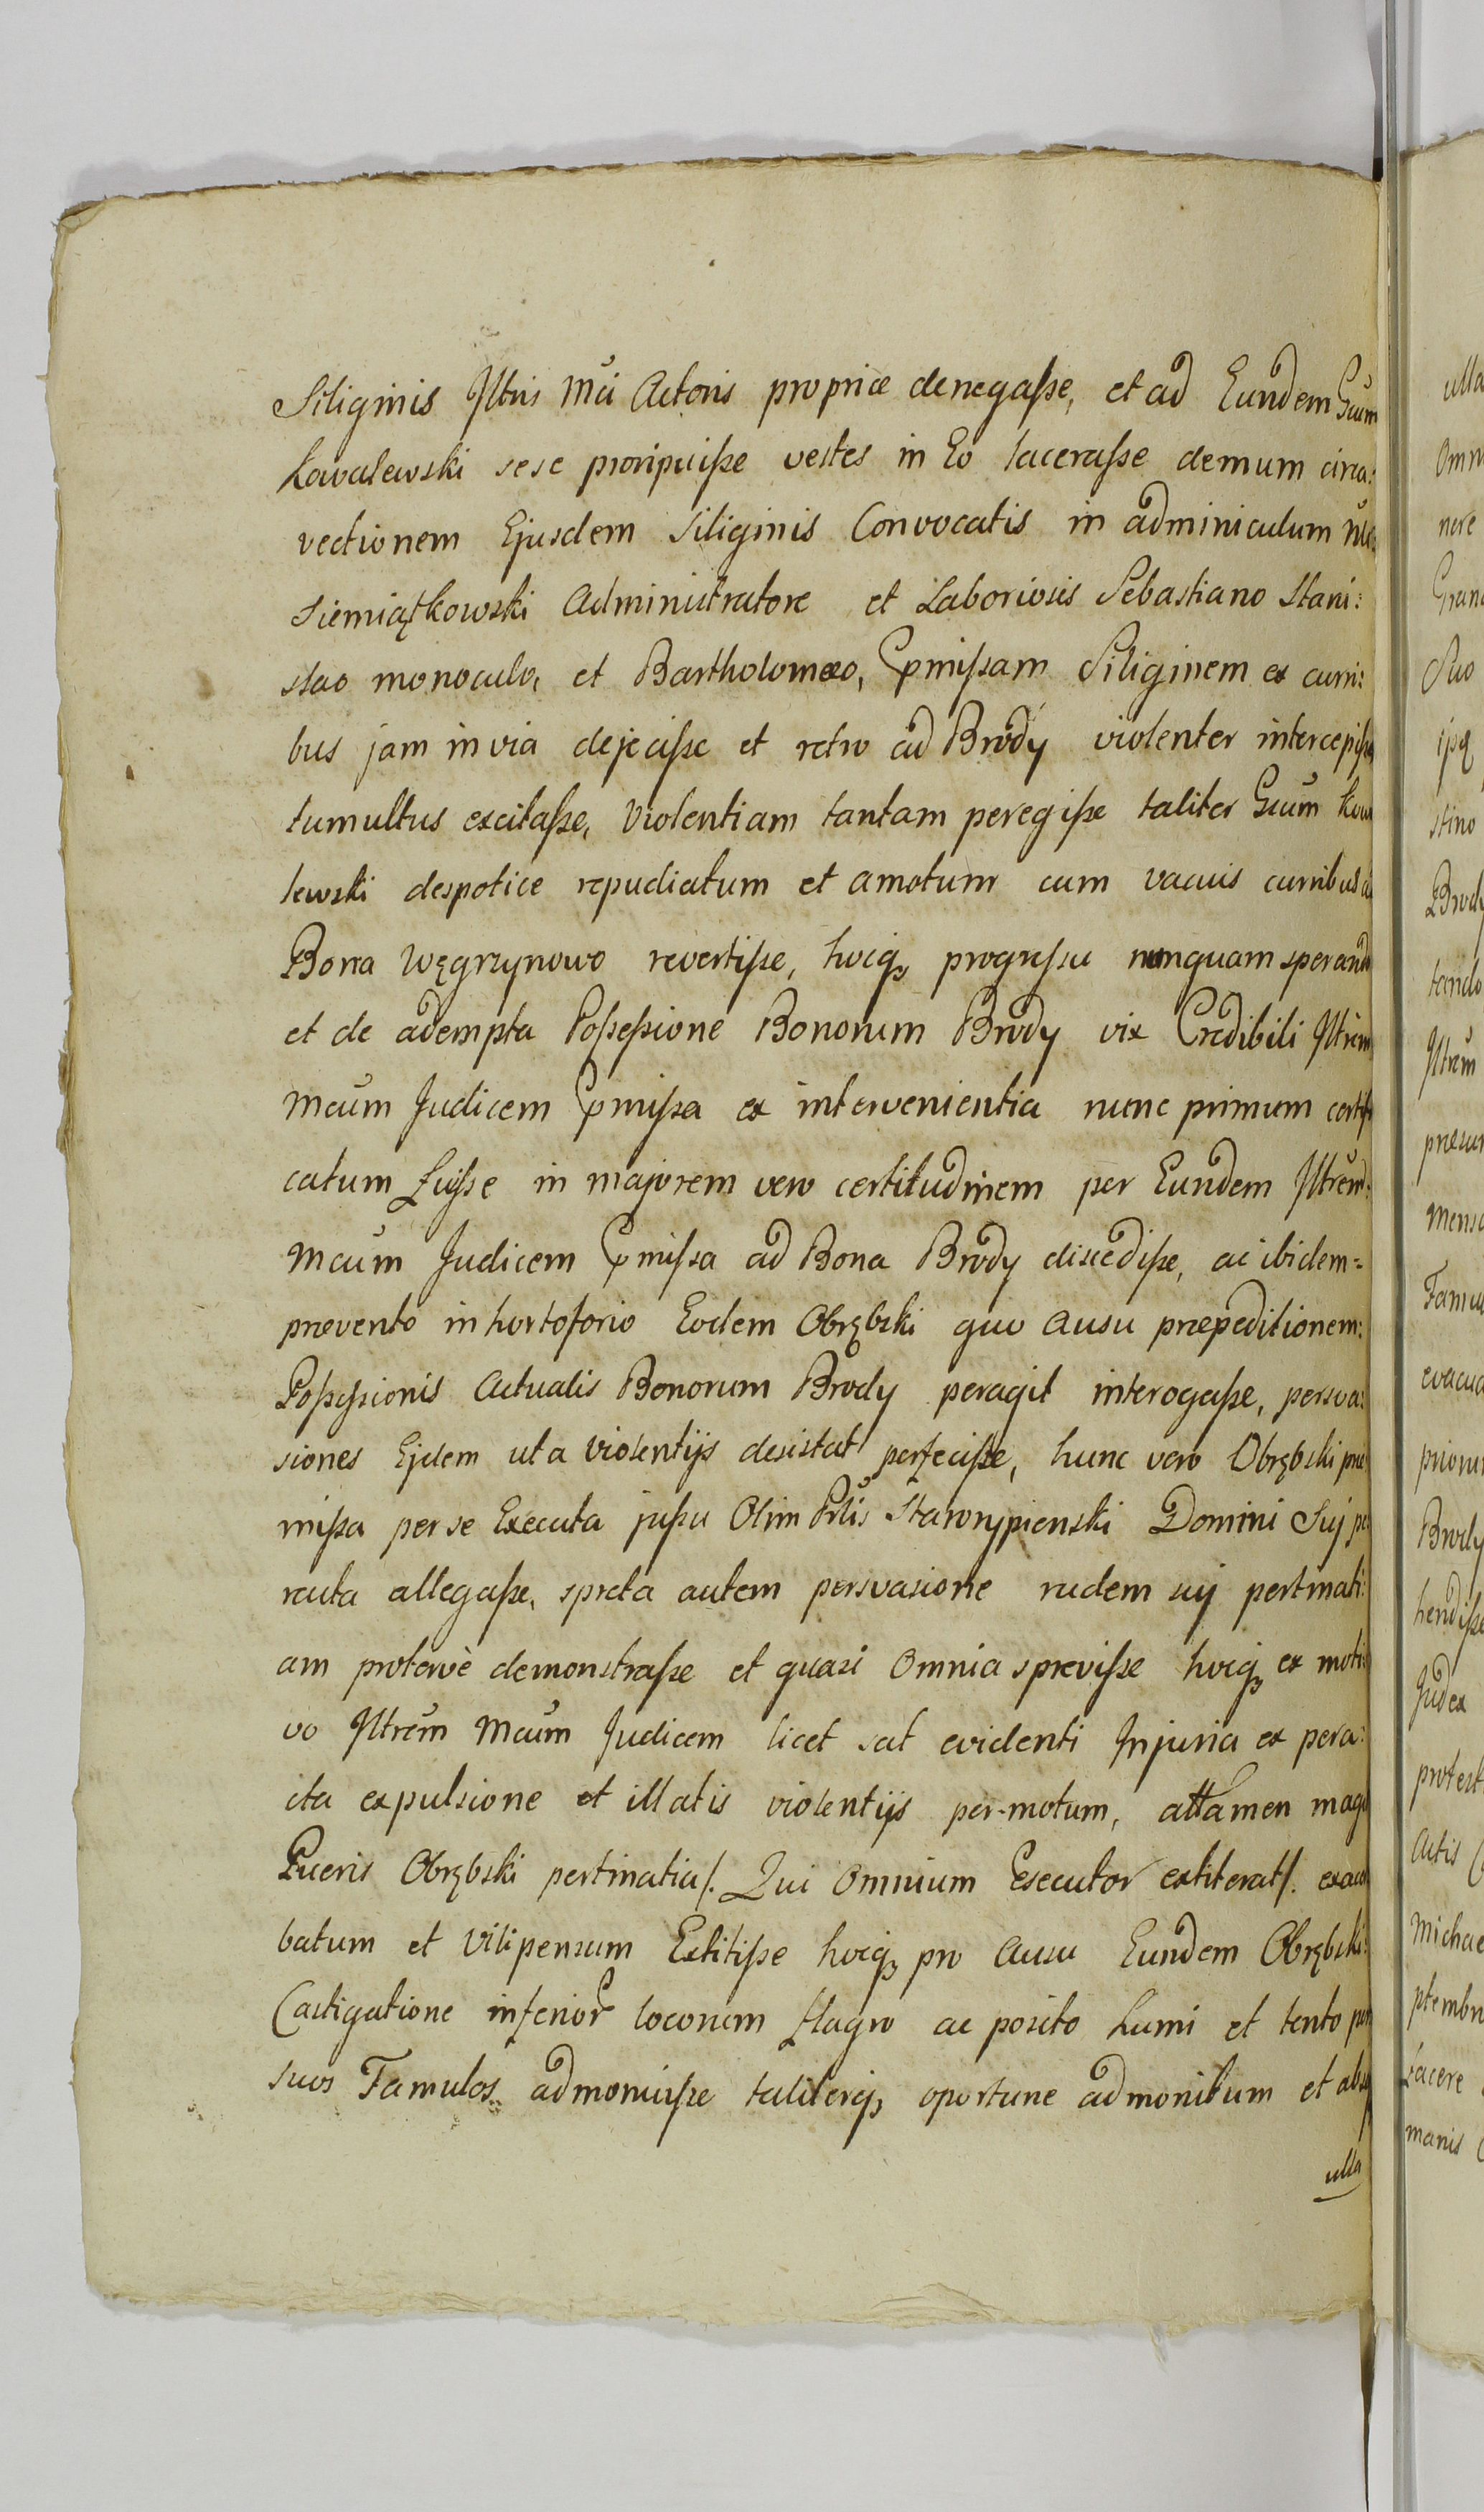 Siliginis Jltris Mci Actoris propriæ denegaſse, et ad Eundem Gsum
Kowalewski sese proripuiſse vestes in Eo laceraſse demum circa:
vectionem Ejusdem Siliginis Convocatis in adminiculum
Siemiątkowski Administratore et Laboriosis Sebastiano Stani:
slao monoculo, et Bartholomæo, Pmiſsam Siliginem ex curri:
bus jam in via dejeciſse et retro ad Brody violenter intercepiſse
tumultus excitaſse, violentiam tantam peregiſse taliter Gsum Kowa
lewski despotice repudiatum et amotum cum vacuis curribus ad
Bona Węgrzynowo revertiſse, hocq, progreſsu nunquam sperando
et de adempta Poſseſsione Bonorum Brody vix Credibili Jltrem
Mcum Judicem Pmiſsa ex intervenientia nunc primum certifi
catum Fuiſse in majorem vero certitudinem per Eundem Jltrem:
Mcum Judicem Pmiſsa ad Bona Brody discediſse, ac ibidem=
prævento in hortoforio Eodem Obrębski quo ausu præpeditionem:
Poſseſsionis Actualis Bonorum Brody peragit interogaſse, persva:
siones Ejdem ut a violentijs desistat perfeciſse, hunc vero Obrębski præ
miſsa per se Executa juſsu Olim Prlis Staworypienski Domini Suj pe
racta allegaſse, spreta autem persvasione rudem suj pertinati:
am protervè demonstraſse et quasi Omnia spreviſse hocq, ex moti:
vo Jltrem Mcum Judicem licet sat evidenti Injuria ex pera:
cta expulsione et illatis violentijs per-motum, attamen magis
Pueris Obrębski pertinatia/. Qui Omnium Executor extiterat/. exacer
batum et vilipensum Extitiſse hocq, pro Ausu Eundem Obrębski:
Castigatione inferior locorum flagro ac posito humi et tento per
suos Famulos admonuiſse taliterq, oportune admonitum et absq
ulla
ulla
Omn
nere
Gran
Suo
ipq
stino
Brody
tando
Jltrem
præsu
mens
Famu
evacua
prioru
Brody
hendiſse
Judex
protest
Actis
Michae
ptembr
facere
manis